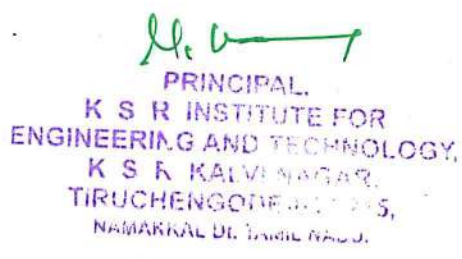 PRINCIPAL.
K S R INSTITUTE FOR
ENGINEERING AND TECHNOLOGY,
K S R KALVI NAGAR,
TIRUCHENGODE
NAMAKKAL Dt. TAMIL NADU.